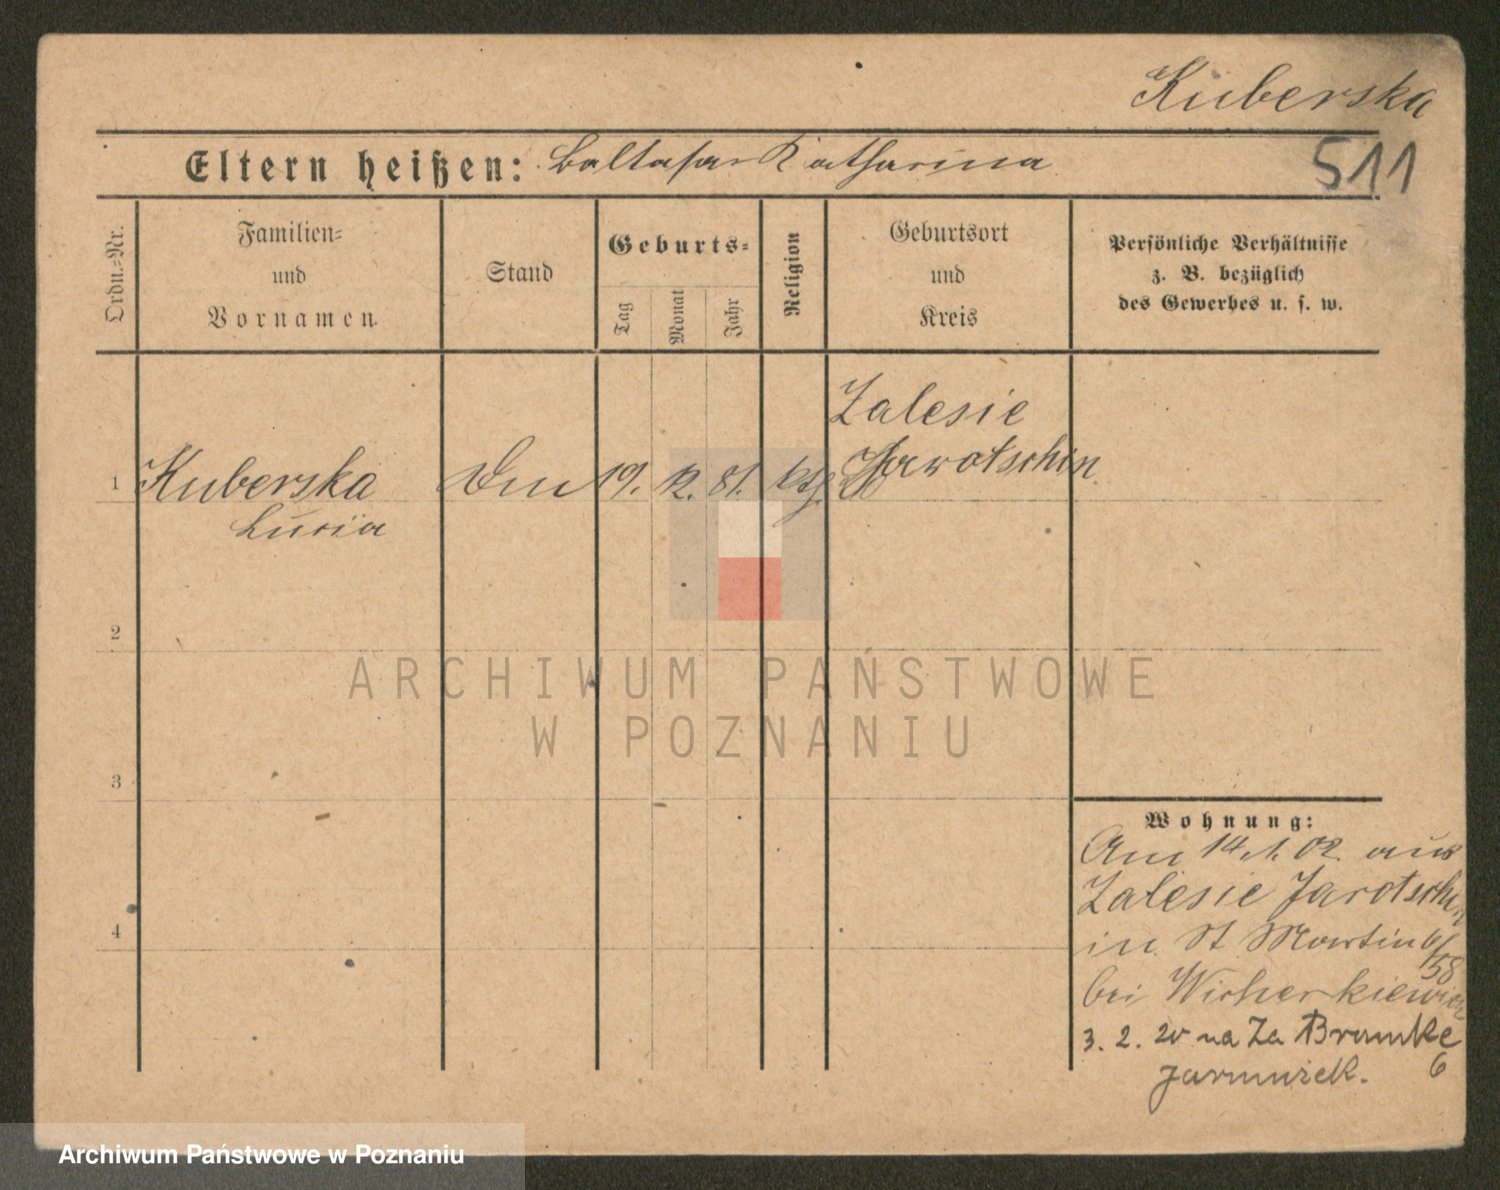 Kuberska
Eltern heißen: Baltasar Katharina
511
Ordn.-Nr.
Familien-
und
Vornamen
Stand
Geburts-
Tag
Monat
Jahr
Religion
Geburtsort
und
Kreis
Persönliche Verhältnisse
z. B. bezüglich
des Gewerbes u. s. w.
Zalesie
1 Kuberska 19. 12. 81. kth. Jarotschin
Lucia
2
3
4
ARCHIWUM PAŃSTWOWE
W POZNANIU
Wohnung:
Am 14.1.02. aus
Zalesie Jarotschin
in St Martin 6/
58
bei Wicherkiewicz
3. 2. 20 na Za Bramke
6
Archiwum Państwowe w Poznaniu